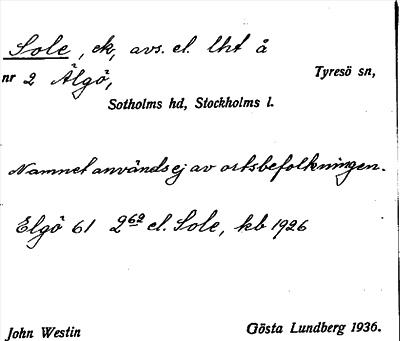 Sole, ck, avs. el. lht å
nr 2 Älgö, Tyresö sn,
Sotholms hd, Stockholms l.
Namnet användsej av ortsbefolkningen.
Elgö 61 2⁶² el. Sole, kb 1926
John Westin Gösta Lundberg 1936.